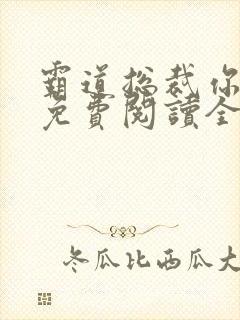 霸道总裁你
免費閱讀全
冬瓜比西瓜大